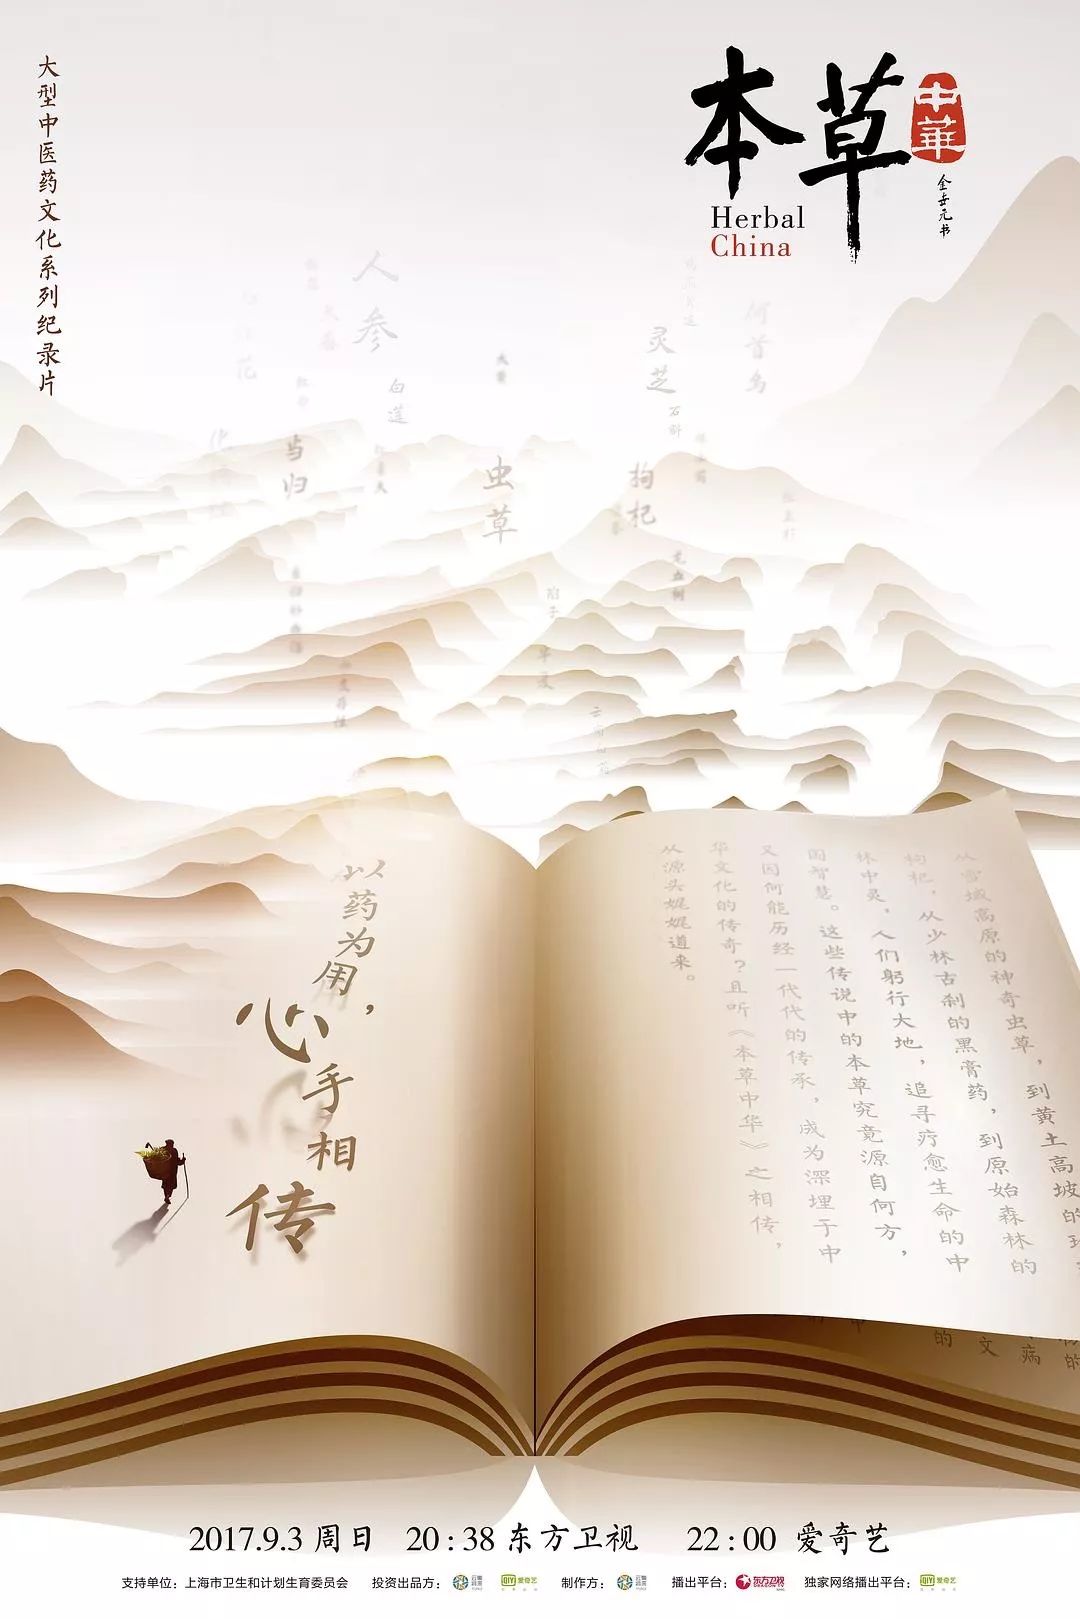 大型中医药文化系列纪录片
本草
中華
Herbal
China
金世元书
人参
灵芝
何首乌
白莲
石斛
当归
虫草
枸杞
以药为用，
心手相传
从雪域高原的神奇虫草，到黄土高坡的
枸杞，从少林古刹的黑膏药，到原始森林的
林中灵，人们躬行大地，追寻疗愈生命的中
国智慧。这些传说中的本草究竟源自何方，
又因何能历经一代代的传承，成为深埋于中
华文化的传奇？且听《本草中华》之相传，
从源头娓娓道来。
2017.9.3 周日 20:38 东方卫视 22:00 爱奇艺
支持单位：上海市卫生和计划生育委员会 投资出品方： 云集将来 QIYI 爱奇艺 制作方： 云集将来 播出平台： 东方卫视 独家网络播出平台： QIYI 爱奇艺